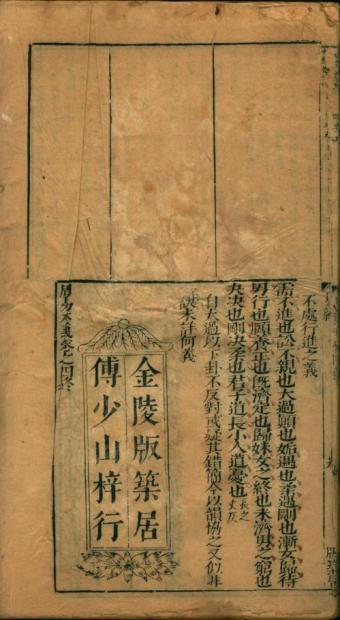 不處行進之義
需不進也訟不親也大過顛也姤遇也柔遇剛也漸女歸待
男行也頤養正也既濟定也歸妹女之終也未濟男之窮也
夬決也剛決柔也君子道長小人道憂也長之丈反
自大過以下卦不反對或疑其錯簡今以韻協之又似非
誤未詳何義
金陵版築居
傅少山梓行
周易本義卷之四終